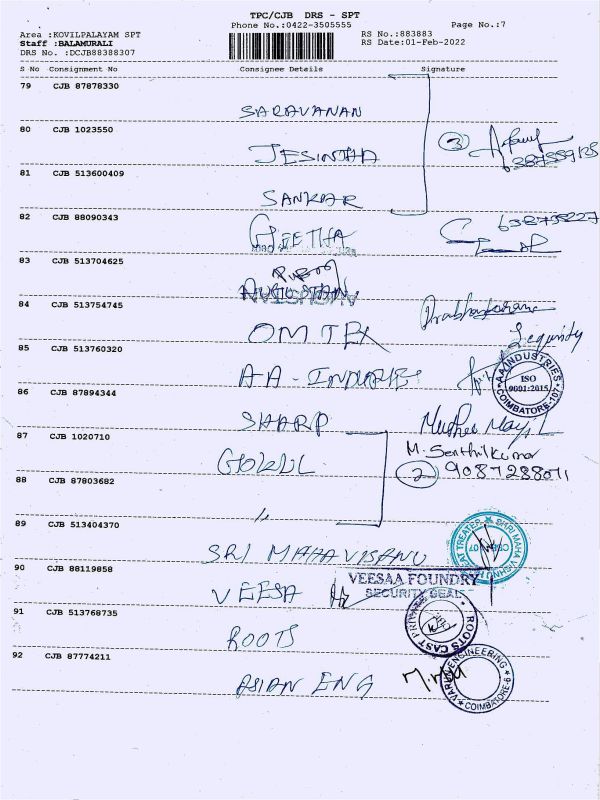 TPC/CJB DRS - SPT
Phone No.:0422-3505555 Page No.:7
Area :KOVILPALAYAM SPT RS No.:883883
Staff :BALAMURALI RS Date:01-Feb-2022
DRS No. :DCJB88388307
S No Consignment No Consignee Details Signature
79 CJB 87878330
SARAVANAN
80 CJB 1023550
JESINTHA 3
81 CJB 513600409
SANKAR
82 CJB 88090343
GEETHA
83 CJB 513704625
84 CJB 513754745
OMTEX Prabhakaran
Sequrity
85 CJB 513760320
AA-INDUSTRIES
AA INDUSTRIES
ISO
9001:2015
COIMBATORE-107
86 CJB 87894344
SHARP
87 CJB 1020710 M. Senthilkumar
GOKUL 2 9087288071
88 CJB 87803682
89 CJB 513404370
SRI MAHA VISHNU
SRI MAHA VISHNU
90 CJB 88119858
VEESA
VEESAA FOUNDRY
SECURITY SEAL
91 CJB 513768735
ROOTS
ROOTS CAST PRIVATE
92 CJB 87774211
ASIAN ENG
ENGINEERING
COIMBATORE-6